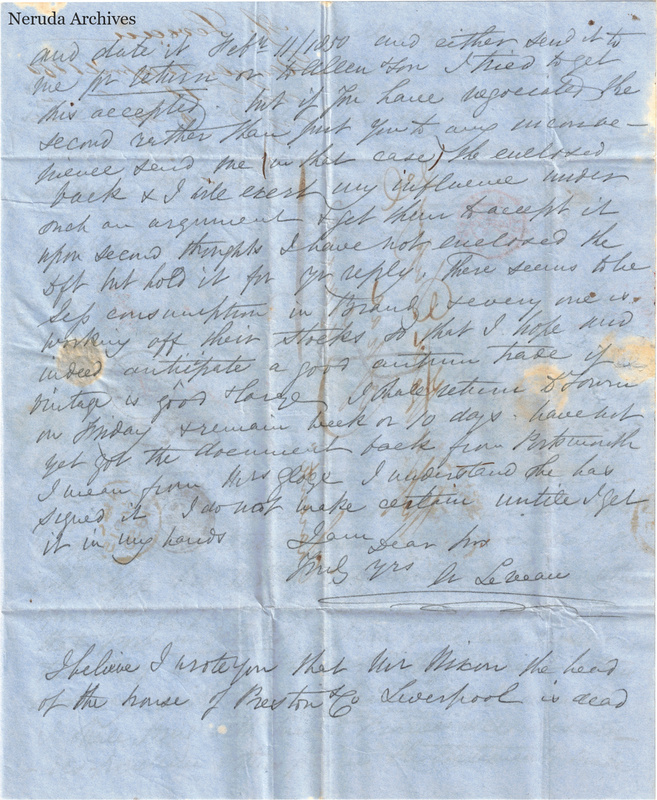 Neruda Archives
and date it Feby 11/1850 and either send it to
me pr return or to Allen & Son I tried to get
this accepted. but if you have negociated the
second rather than put you to any inconve-
nience send me (in that case) the enclosed
back & I will exert my influence under
such an argument & get them to accept it
upon second thoughts I have not enclosed the
Dft but hold it for yr reply. There seems to be
less consumption in Brandies every one is
working off their stocks so that I hope and
indeed anticipate a good autumn trade if
vintage is good & large I shall return to town
on Friday & remain week or 10 days. have not
yet got the document back from Portsmouth
I mean from Mrs I understand she has
signed it I do not make certain untill I get
it in my hands I am Dear Sirs
Truly yrs
I believe I wrote you that Mr Nixon the head
of the house of Preston & Co Liverpool is dead